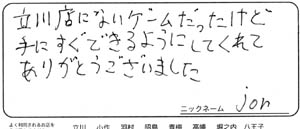 立川店にないゲームだったけど
手にすぐできるようにしてくれて
ありがとうございました
ニックネーム jon
よく利用されるお店を
立川 小作 羽村 昭島 青梅 高幡 堀之内 八王子